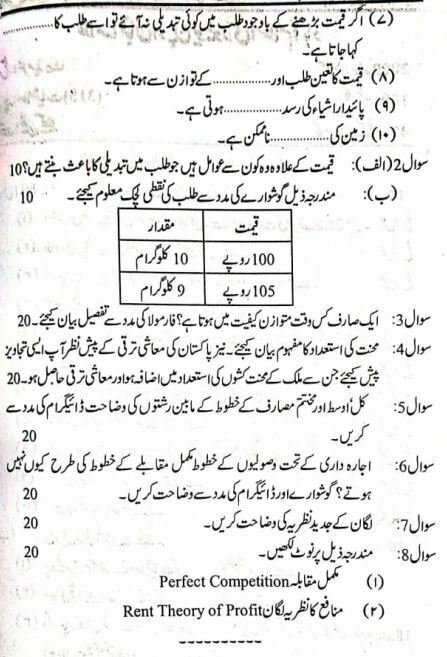 (۷) اگر قیمت بڑھنے کے باوجود طلب میں کوئی تبدیلی نہ آئے تو اسے طلب کا..............
کہا جاتا ہے۔
(۸) قیمت کا تعین طلب اور..............کے توازن سے ہوتا ہے۔
(۹) پائیدار اشیاء کی رسد..............ہوتی ہے۔
(۱۰) زمین کی..............ناممکن ہے۔
سوال2(الف): قیمت کے علاوہ وہ کون سے عوامل ہیں جو طلب میں تبدیلی کا باعث بنتے ہیں؟10
(ب): مندرجہ ذیل گوشوارے کی مدد سے طلب کی نقطی لچک معلوم کیجئے۔ 10
قیمت مقدار
100 روپے 10 کلوگرام
105 روپے 9 کلوگرام
سوال3: ایک صارف کس وقت متوازن کیفیت میں ہوتا ہے؟ فارمولا کی مدد سے تفصیل بیان کیجئے۔20
سوال4: محنت کی استعداد کا مفہوم بیان کیجئے۔ نیز پاکستان کی معاشی ترقی کے پیش نظر آپ ایسی تجاویز
پیش کیجئے جن سے ملک کے محنت کشوں کی استعداد میں اضافہ ہو اور معاشی ترقی حاصل ہو۔20
سوال5: کل، اوسط اور مختتم مصارف کے خطوط کے مابین رشتوں کی وضاحت ڈائیگرام کی مدد سے
کریں۔ 20
سوال6: اجارہ داری کے تحت وصولیوں کے خطوط مکمل مقابلے کے خطوط کی طرح کیوں نہیں
ہوتے؟ گوشوارے اور ڈائیگرام کی مدد سے وضاحت کریں۔ 20
سوال7: لگان کے جدید نظریہ کی وضاحت کریں۔ 20
سوال8: مندرجہ ذیل پر نوٹ لکھیں۔ 20
(۱) مکمل مقابلہ Perfect Competition
(۲) منافع کا نظریہ لگان Rent Theory of Profit
----------